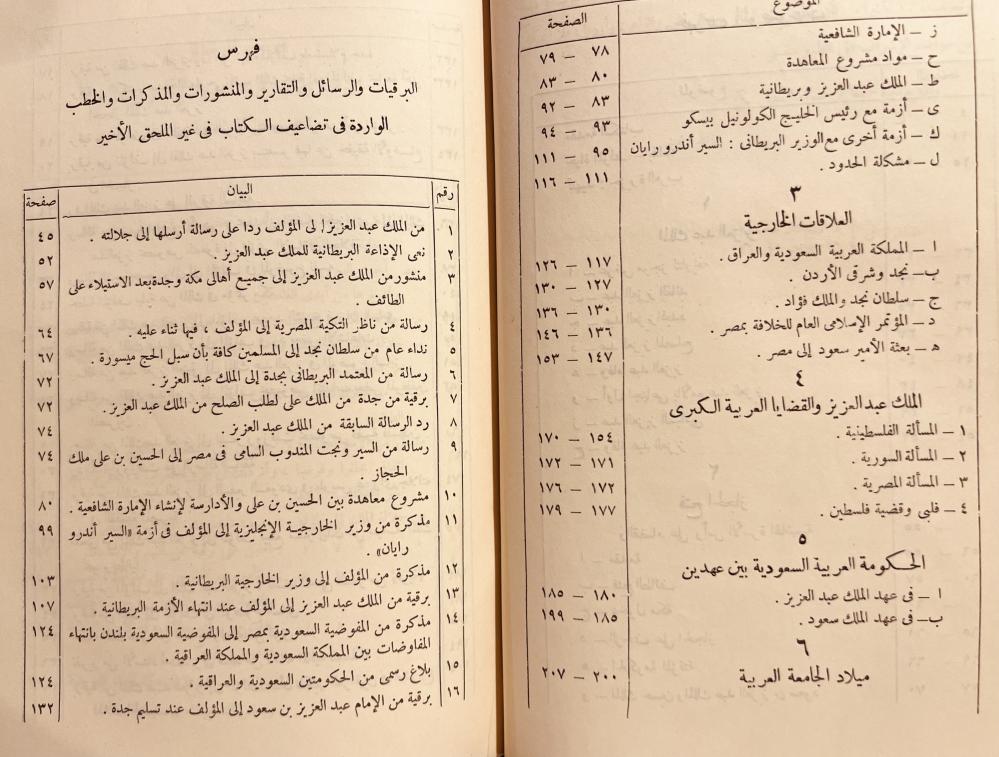 الموضوع
الصفحة
ز – الإمارة الشافعية
ح – مواد مشروع المعاهدة ٧٨ – ٧٩
ط – الملك عبد العزيز وبريطانية ٨٠ – ٨٣
ى – أزمة مع رئيس الخليج الكولونيل بيسكو ٨٣ – ٩٢
ك – أزمة أخرى مع الوزير البريطانى : السير أندرو رايان ٩٣ – ٩٤
ل – مشكلة الحدود . ٩٥ – ١١١
١١١ – ١١٦
٣
العلاقات الخارجية
ا – المملكة العربية السعودية والعراق . ١١٧ – ١٢٦
ب – نجد وشرقى الأردن . ١٢٧ – ١٣٠
ج – سلطان نجد والملك فؤاد . ١٣٠ – ١٣٦
د – المؤتمر الإسلامى العام للخلافة بمصر . ١٣٦ – ١٤٦
ه – بعثة الأمير سعود إلى مصر . ١٤٧ – ١٥٣
٤
الملك عبد العزيز والقضايا العربية الكبرى
١ – المسألة الفلسطينية . ١٥٤ – ١٧٠
٢ – المسألة السورية . ١٧١ – ١٧٢
٣ – المسألة المصرية . ١٧٢ – ١٧٦
٤ – فلبى وقضية فلسطين . ١٧٧ – ١٧٩
٥
الحكومة العربية السعودية بين عهدين
ا – فى عهد الملك عبد العزيز . ١٨٠ – ١٨٥
ب – فى عهد الملك سعود . ١٨٥ – ١٩٩
٦
ميلاد الجامعة العربية ٢٠٠ – ٢٠٧
فهرس
البرقيات والرسائل والتقارير والمنشورات والمذكرات والخطب
الواردة فى تضاعيف الكتاب فى غير الملحق الأخير
رقم البيان صفحة
١ من الملك عبد العزيز إلى المؤلف ردا على رسالة أرسلها إلى جلالته . ٤٥
٢ نعى الإذاعة البريطانية للملك عبد العزيز . ٥٢
٣ منشور من الملك عبد العزيز إلى جميع أهالى مكة وجدة بعد الاستيلاء على ٥٧
الطائف .
٤ رسالة من ناظر التكية المصرية إلى المؤلف ، فيها ثناء عليه . ٦٤
٥ نداء عام من سلطان نجد إلى المسلمين كافة بأن سبل الحج ميسورة . ٦٧
٦ رسالة من المعتمد البريطانى بجدة إلى الملك عبد العزيز . ٧٢
٧ برقية من جدة من الملك على لطلب الصلح من الملك عبد العزيز . ٧٢
٨ رد الرسالة السابقة من الملك عبد العزيز . ٧٤
٩ رسالة من السير ونجت المندوب السامى فى مصر إلى الحسين بن على ملك ٧٤
الحجاز
١٠ مشروع معاهدة بين الحسين بن على والأدارسة لإنشاء الإمارة الشافعية . ٨٠
١١ مذكرة من وزير الخارجية الإنجليزية إلى المؤلف فى أزمة «السير أندرو ٩٩
رايان» .
١٢ مذكرة من المؤلف إلى وزير الخارجية البريطانية . ١٠٣
١٣ برقية من الملك عبد العزيز إلى المؤلف عند انتهاء الأزمة البريطانية . ١٠٧
١٤ مذكرة من المفوضية السعودية بمصر إلى المفوضية السعودية بلندن بانتهاء ١٢٤
المفاوضات بين المملكة السعودية والمملكة العراقية .
١٥ بلاغ رسمى من الحكومتين السعودية والعراقية . ١٢٤
١٦ برقية من الإمام عبد العزيز بن سعود إلى المؤلف عند تسليم جدة . ١٣٢